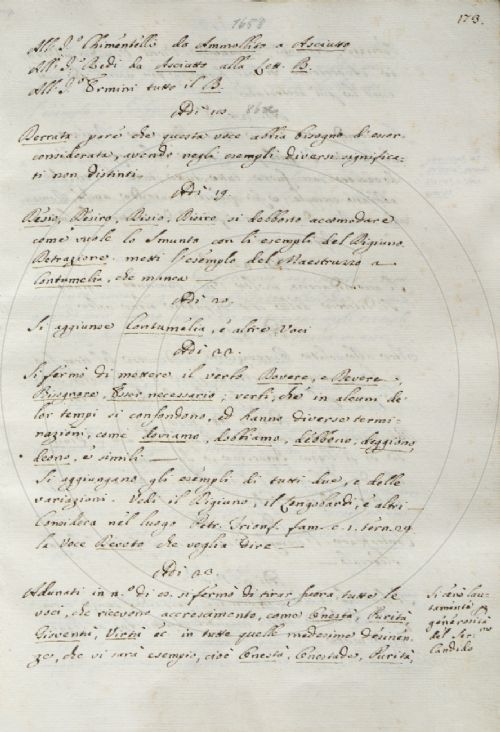 1658
173.
All. S.r Chimentelli da Ammollito a Asciutto
All. S.r Redi da Asciutto alla Lett. B.
All. S.r Ermini tutto il B.
Adì 18.
Beccata pare che questa voce abbia bisogno d'esser
considerata, avendo negli esempli diversi significa-
ti non distinti.
Adì 19.
si debbono accomodare
come vuole lo Smunto con li esempli del
Detrazione. metti l'esemplo del Maestruzzo a
Contumelia, che manca
Adì 20.
Si aggiunse Contumelia, e altre Voci
Adì 22.
Si fermò di mettere il verbo Dovere, e Devere,
Bisognare, Esser necessario; verbi, che in alcuni de
lor tempi si confondono, ed hanno diverse termi-
nazioni, come doviamo, dobbiamo, debbono, deggiono,
deono, e simili
Si aggiungano gli esempli di tutti due, e delle
variazioni. Vedi il il Longobardi, e altri
Considera nel luogo Petr. Trionf. fam. c. 1. tern. 29
la Voce devoto che voglia dire
Adì 23.
Adunati in n.o di 10. si fermò di tirar fuora tutte le
voci, che ricevono accrescimento, come Onestà, Purità,
Gioventù, Virtù ec in tutte quelle medesime desinen-
ze, che vi sarà esempio, cioè Onestà, Onestade, Purità,
Si cenò lau-
tamente
generosità
del Ser.mo
Candido